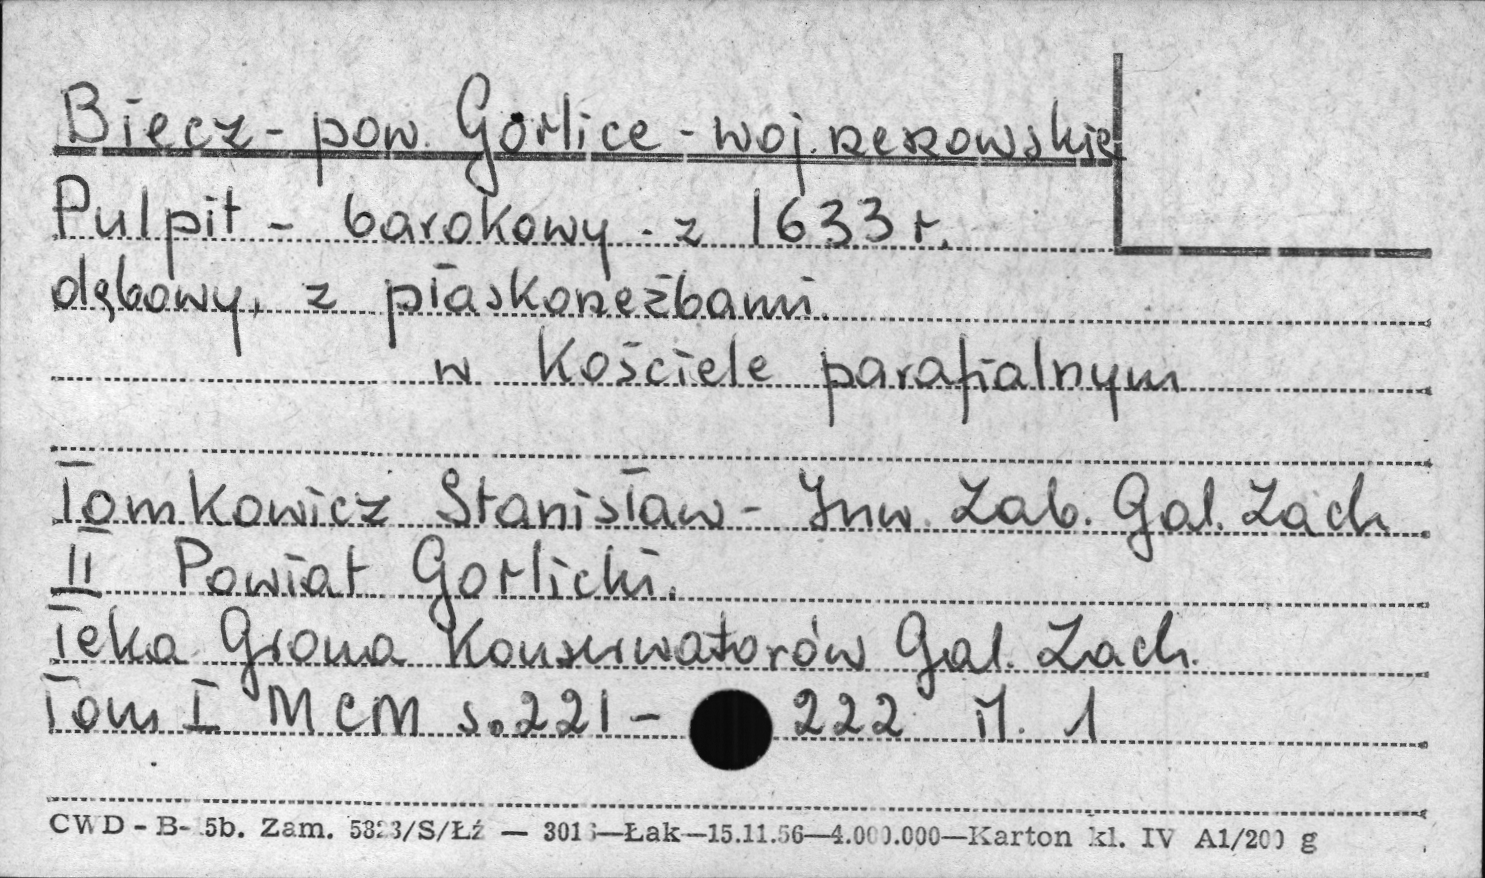 Biecz - pow. Gorlice - woj. rzeszowskie
Pulpit - barokowy - z 1633 r.
dębowy, z płaskorzeźbami
w Kościele parafialnym
Tomkowicz Stanisław - Inw. Zab. Gal. Zach
II Powiat Gorlicki.
Teka Grona Konserwatorów Gal. Zach.
Tom I MCM s. 221 - 222 il. 1
CWD - B- 5b. Zam. 5823/S/Łź — 3013—Łak—15.11.56—4.000.000—Karton kl. IV A1/200 g